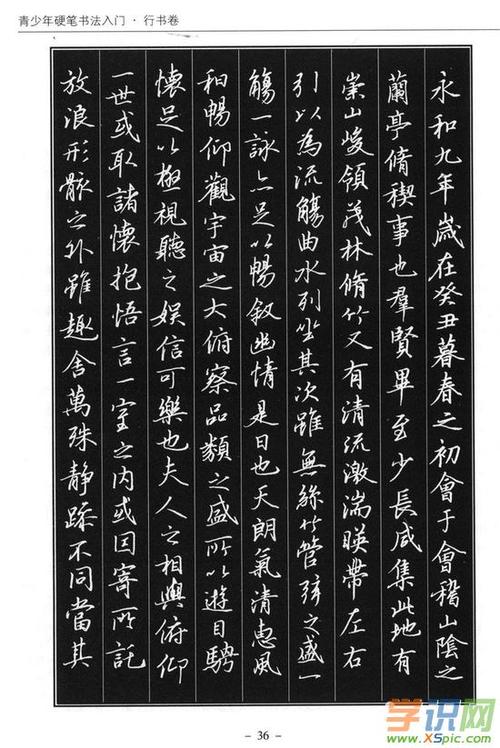 青少年硬笔书法入门·行书卷
永和九年歲在癸丑暮春之初會于會稽山陰之
蘭亭脩稧事也羣賢畢至少長咸集此地有
崇山峻領茂林脩竹又有清流激湍暎帶左右
引以為流觴曲水列坐其次雖無絲竹管弦之盛一
觴一詠亦足以暢敘幽情是日也天朗氣清惠風
和暢仰觀宇宙之大俯察品類之盛所以遊目騁
懷足以極視聽之娛信可樂也夫人之相與俯仰
一世或取諸懷抱悟言一室之内或因寄所託
放浪形骸之外雖趣舍萬殊静躁不同當其
- 36 -
学识网
www.XSpic.com